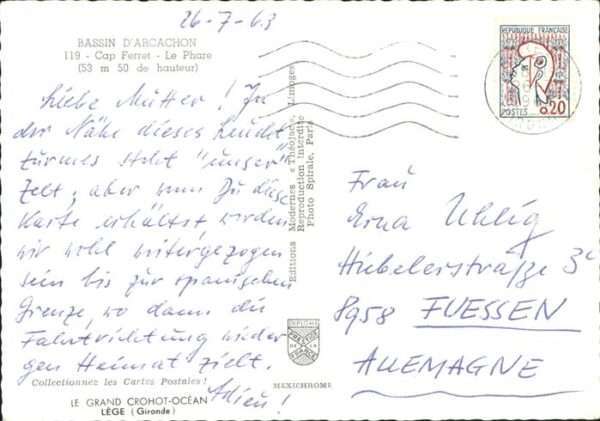 26-7-63
BASSIN D'ARCACHON
119 - Cap Ferret - Le Phare
(53 m 50 de hauteur)
Liebe Mutter! In
der Nähe dieses Leucht
turmes steht "unser"
Zelt, aber wenn Du diese
Karte erhältst werden
wir wohl weitergezogen
sein bis zur spanischen
Grenze, wo dann die
Fahrtrichtung wieder
gen Heimat zielt.
Adieu!
Collectionnez les Cartes Postales!
LE GRAND CROHOT-OCÉAN
LÈGE (Gironde)
Editions Modernes « Théojac », Limoges
Reproduction interdite
Photo Spirale, Paris
MEXICHROME
RÉPUBLIQUE FRANÇAISE
0,20
POSTES
Frau
Erna Uhlig
Hiebelerstraße 3c
8958 FUESSEN
ALLEMAGNE